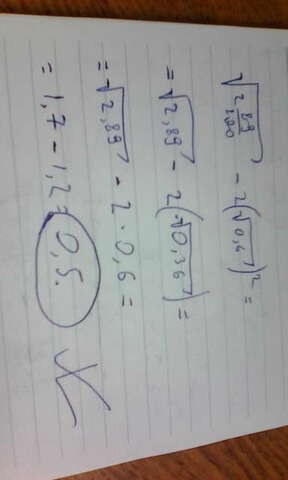 √(2 89/100) - 2(√0,6)² =
= √2,89 - 2(√0,36) =
= √2,89 - 2 · 0,6 =
= 1,7 - 1,2 = 0,5.